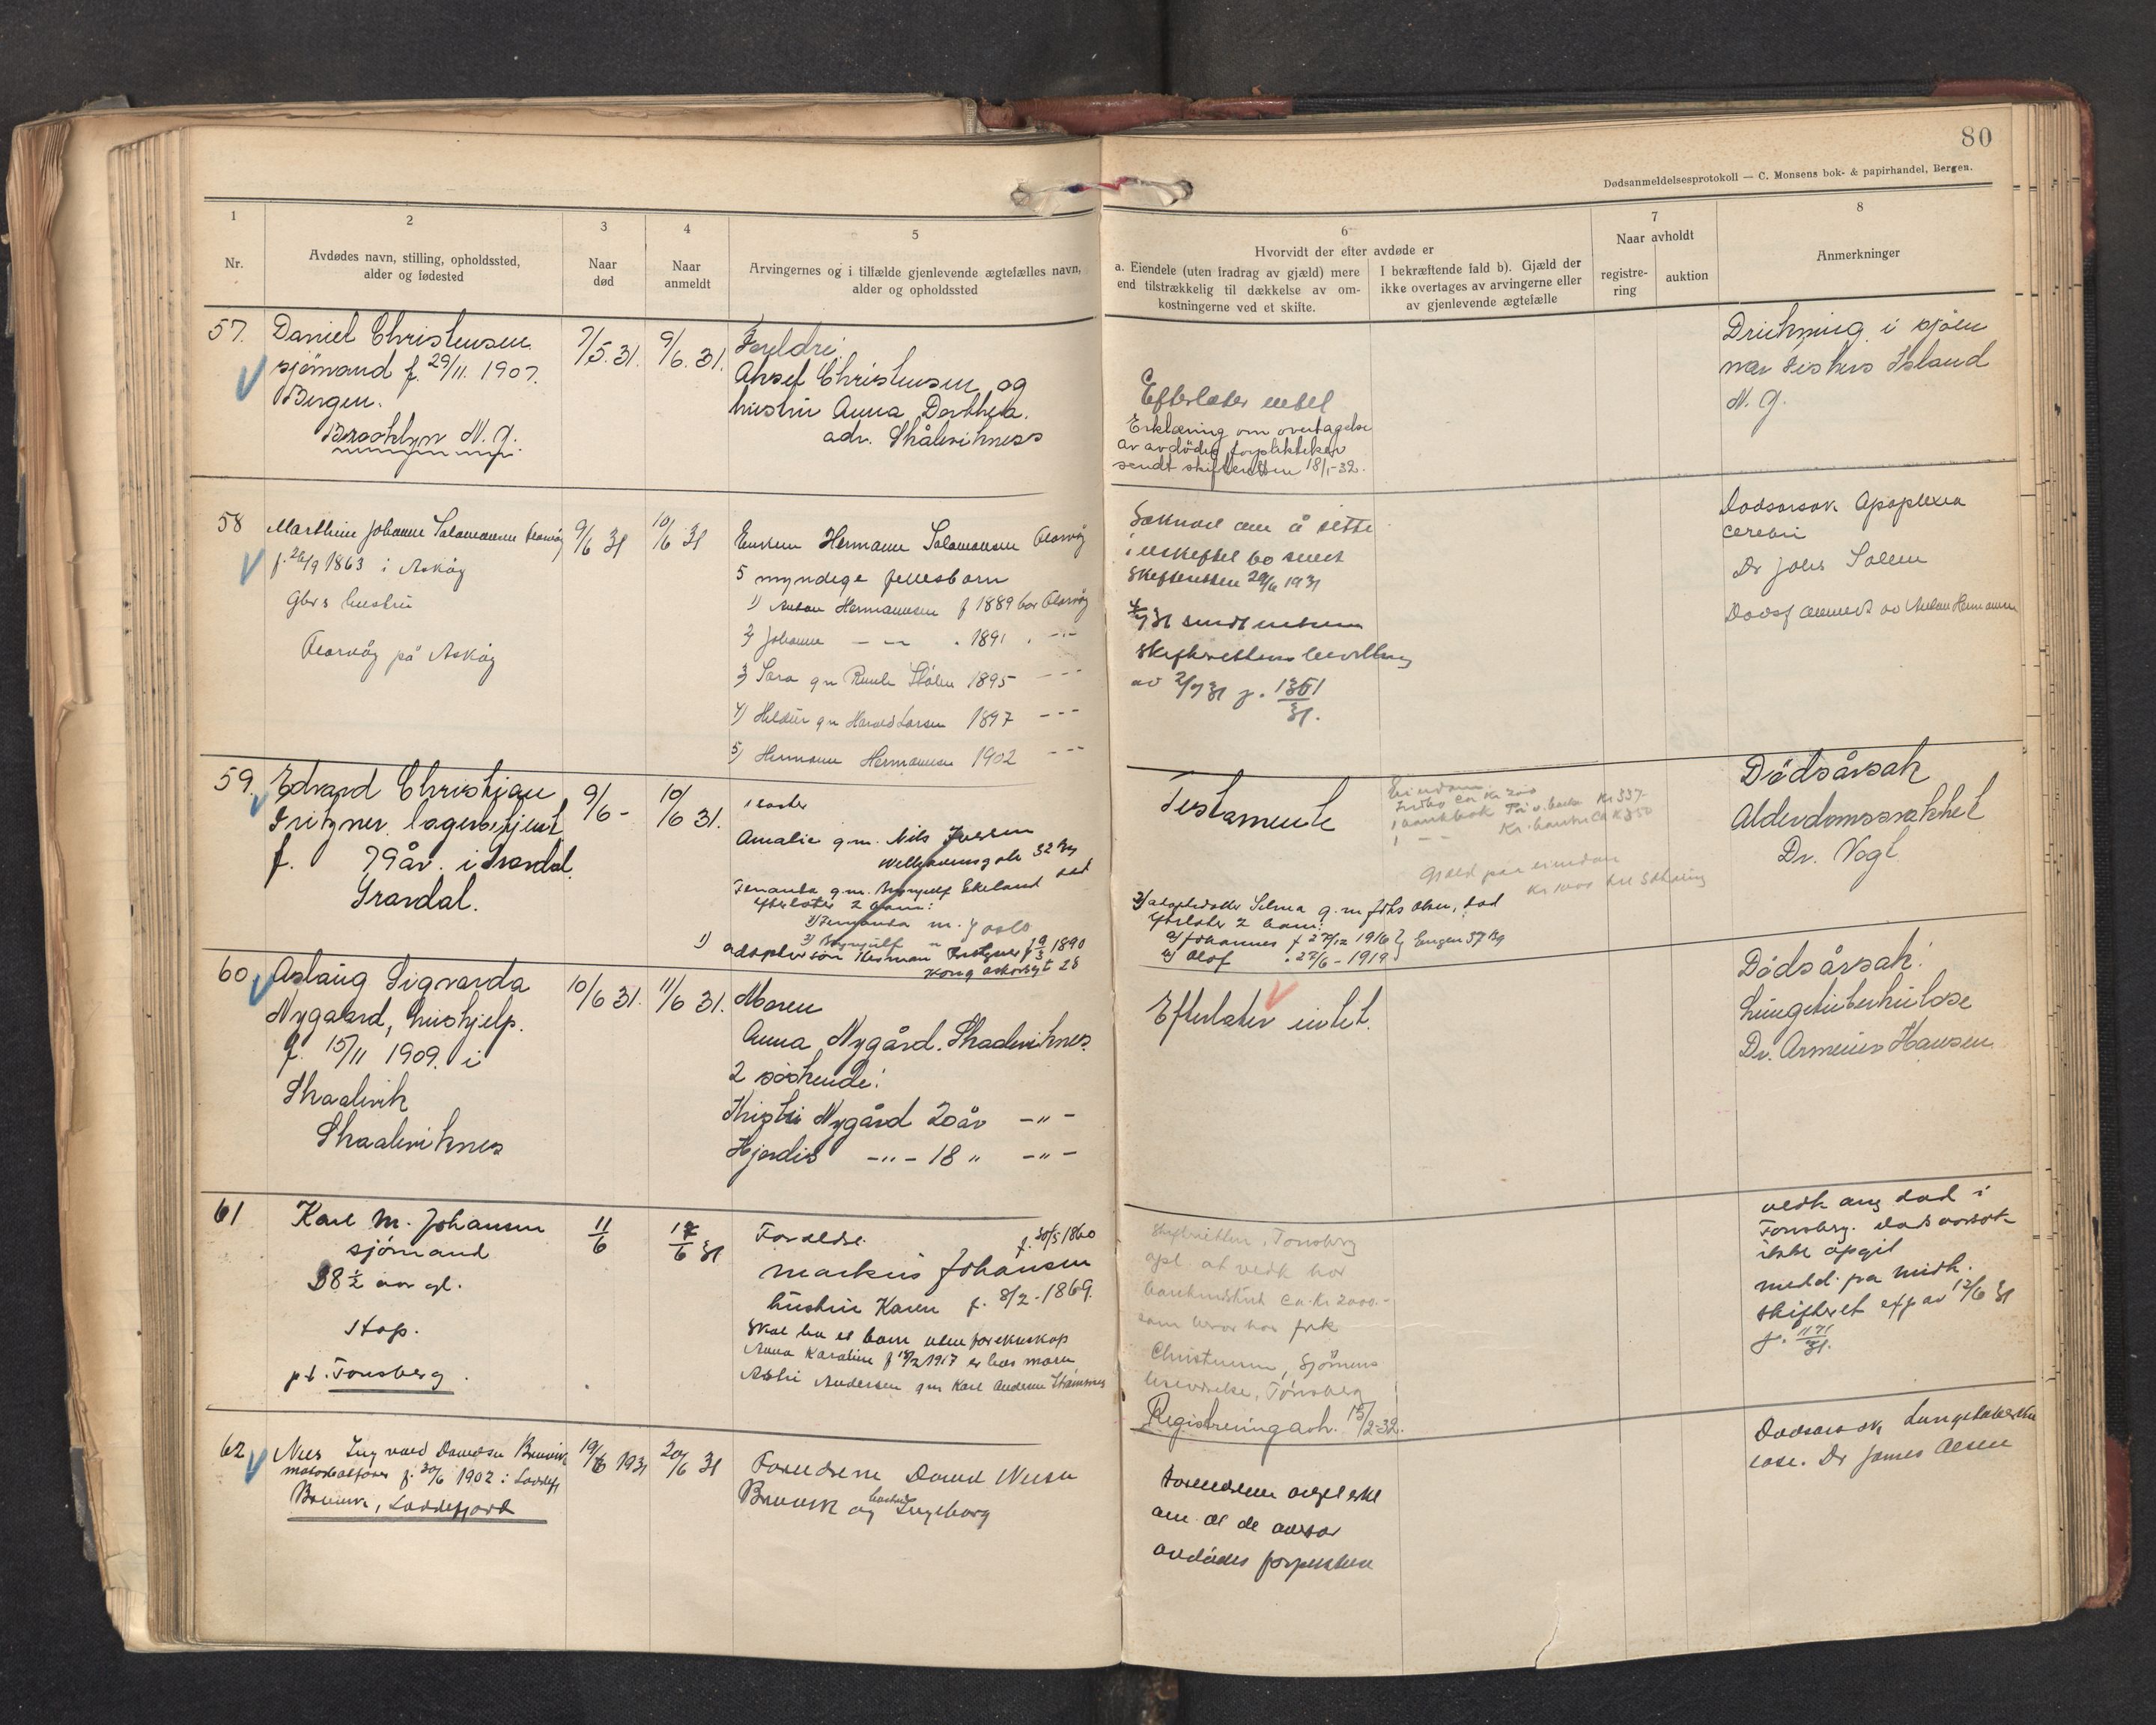 80
Dødsanmeldelsesprotokoll — C. Monsens bok- & papirhandel, Bergen.
1
Nr.
2
Avdødes navn, stilling, opholdssted,
alder og fødested
3
Naar
død
4
Naar
anmeldt
5
Arvingernes og i tilfælde gjenlevende ægtefælles navn,
alder og opholdssted
6
Hvorvidt der efter avdøde er
a. Eiendele (uten fradrag av gjæld) mere
end tilstrækkelig til dækkelse av om-
kostningerne ved et skifte.
I bekræftende fald b). Gjæld der
ikke overtages av arvingerne eller
av gjenlevende ægtefælle
7
Naar avholdt
registre-
ring
auktion
8
Anmerkninger
57.
Daniel Christensen
sjömand f. 29/11. 1907.
Bergen.
Brooklyn N. Y.
7/5. 31.
9/6. 31.
Foreldre:
Christensen og
hustru Anna Dorthea.
adr. Skålviknes
Efterlater intet
Erklæring om overtagelse
av avdödes forpliktelser
sendt skifteretten 18/1-32.
Drukning i sjöen
nær Fishers Island
N. Y.
58
Marthine Johanne Salomonsen
f. 26/9 1863 i Asköy
Gbrs hustru
på Asköy
9/6 31
10/6 31
Enkem Hermann Salomonsen
5 myndige fellesbarn
1) Anton Hermannsen f 1889 bor
2) Johanne — " — . 1891 . -"-
3) Sara g m 1895 -"-
4) g m Harald Larsen 1897 -"-
5) Hermann Hermannsen 1902 -"-
Söknad om å sitte
i uskiftet bo sendt
skifteretten 29/6 1931
sendt
skifterettens bevilling
av 2/7 31 j. 1351/31.
Dödsorsak Apoplexia
cerebri
Dr Johs Solem
Dödsf anmeldt av Anton Hermannsen
59.
Edvard Christian
Fritzner lagerbetjent
f. 79 år. i Gravdal.
Gravdal.
9/6 -
10/6 31.
1 søster
Amalie g.m. Nils Iversen
Welhavensgate 32 Bg
g.m. Brynjulf Ekeland död
efterlater 2 barn:
1) adoptivsön Herman Fritzner f 9/3 1890
Testamente
Eiendom
Indbo ca Kr 200
1 bankbok Kr 337.
Gjæld paa eiendom
2) adoptivdatter Selma g. m Johs Olsen, död
efterlater 2 barn:
a) Johannes f 27/12 1916 } Engen 37 Bg
b) Olof . 22/6 - 1919
Dödsårsak
Alderdomssvakhet
Dr. Vogt.
60
Aslaug Sigvarda
Nygaard, hushjelp.
f. 15/11 1909. i
Skaalvik
Skaalviknes
10/6 31.
11/6 31.
Moren
Anna Nygård. Skaalviknes.
2 söskende:
Kristi Nygård 20 år -"-
Hjerdis -"- 18 " -"-
Efterlater intet.
Dödsårsak:
Lungetuberkulose
Dr. Armeius Hansen.
61
Karl M. Johansen
sjömand
38½ aar gl.
Hop.
pt. Tonsberg.
11/6
12/6 31
Foreldre. f. 30/5 1860
Markus Johansen
hustru Karen f. 8/2 - 1869.
Skal ha et barn uten for ekteskap
Anna Karoline f 1917 er hos moren
Andersen gm Karl Andersen
Skifteretten, Tonsberg
opl. at vedk har
bankinnskud ca. Kr 2000.-
som bror hos frk
Christensen, Sjömens
leseværelse, Tönsberg
Registrering avh. 15/2-32.
vedk ang död i
Tonsberg. dödsorsak
ikke opgit
meld. pa midh.
skifteret exp av 12/6 31
j. 1171/31.
62
Nils Ingvald Davidsen Bruvik
f. 30/6 1902 i Loddefj
Bruvik, Loddefjord
19/6 1931
20/6 31
Foreldrene David Nilsen
Bruvik og hustru Ingeborg
Foreldrene
om at de overtar
avdödes forpliktelser
Dödsorsak Lungetuberku
lose. Dr James Olsen